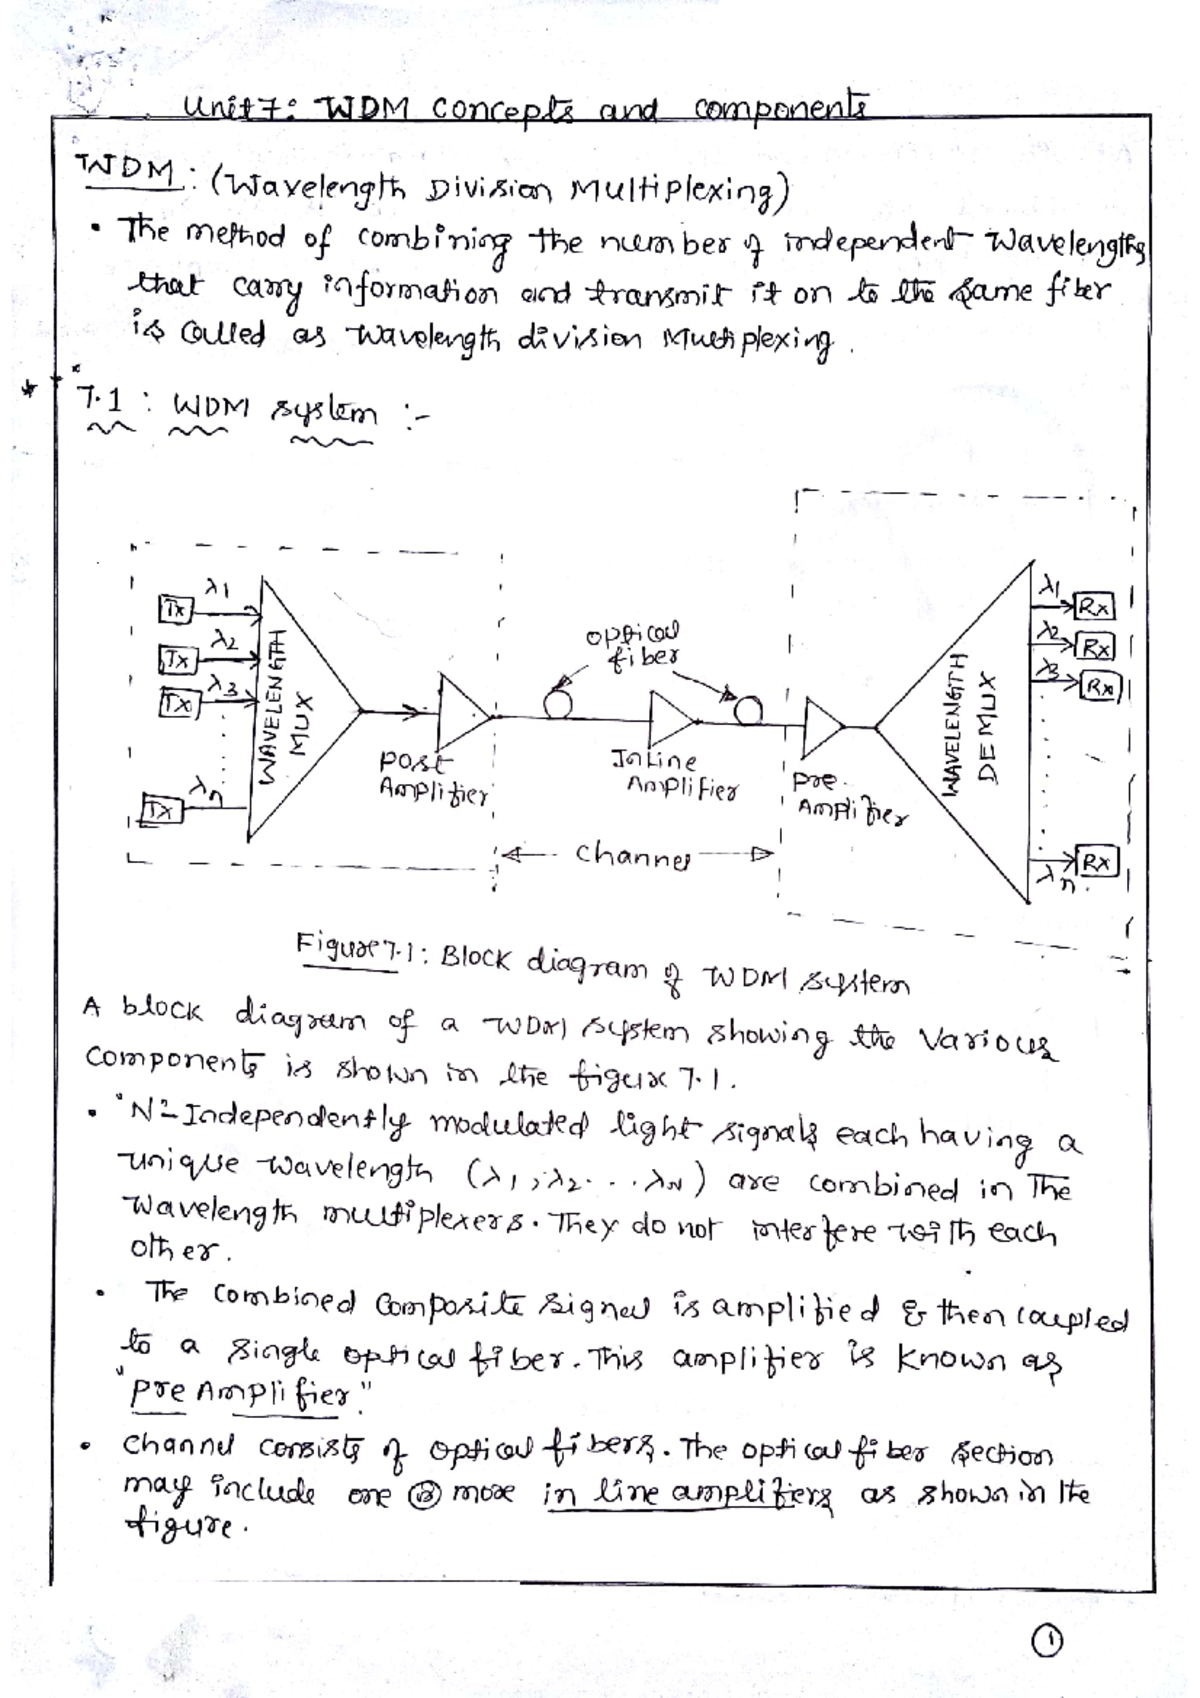 Unit 7: WDM concepts and components
WDM: (Wavelength Division Multiplexing)
• The method of combining the number of independent Wavelengths
that carry information and transmit it on to the same fiber
is called as wavelength division Multiplexing.
* 7.1 : WDM system :-
Tx λ1
Tx λ2
Tx λ3
Tx λn
WAVELENGTH
MUX
Post
Amplifier
optical
fiber
InLine
Amplifier
Pre-
Amplifier
WAVELENGTH
DEMUX
λ1 Rx
λ2 Rx
λ3 Rx
λn Rx
Channel
Figure 7.1: Block diagram of WDM system
A block diagram of a WDM system showing the various
components is shown in the figure 7.1.
• 'N'-Independently modulated light signals each having a
unique wavelength (λ1, λ2...λN) are combined in The
Wavelength multiplexers. They do not interfere with each
other.
• The combined composite signal is amplified & then coupled
to a single optical fiber. This amplifier is known as
"Pre Amplifier."
• Channel consists of optical fibers. The optical fiber section
may include one or more in line amplifiers as shown in the
figure.
1